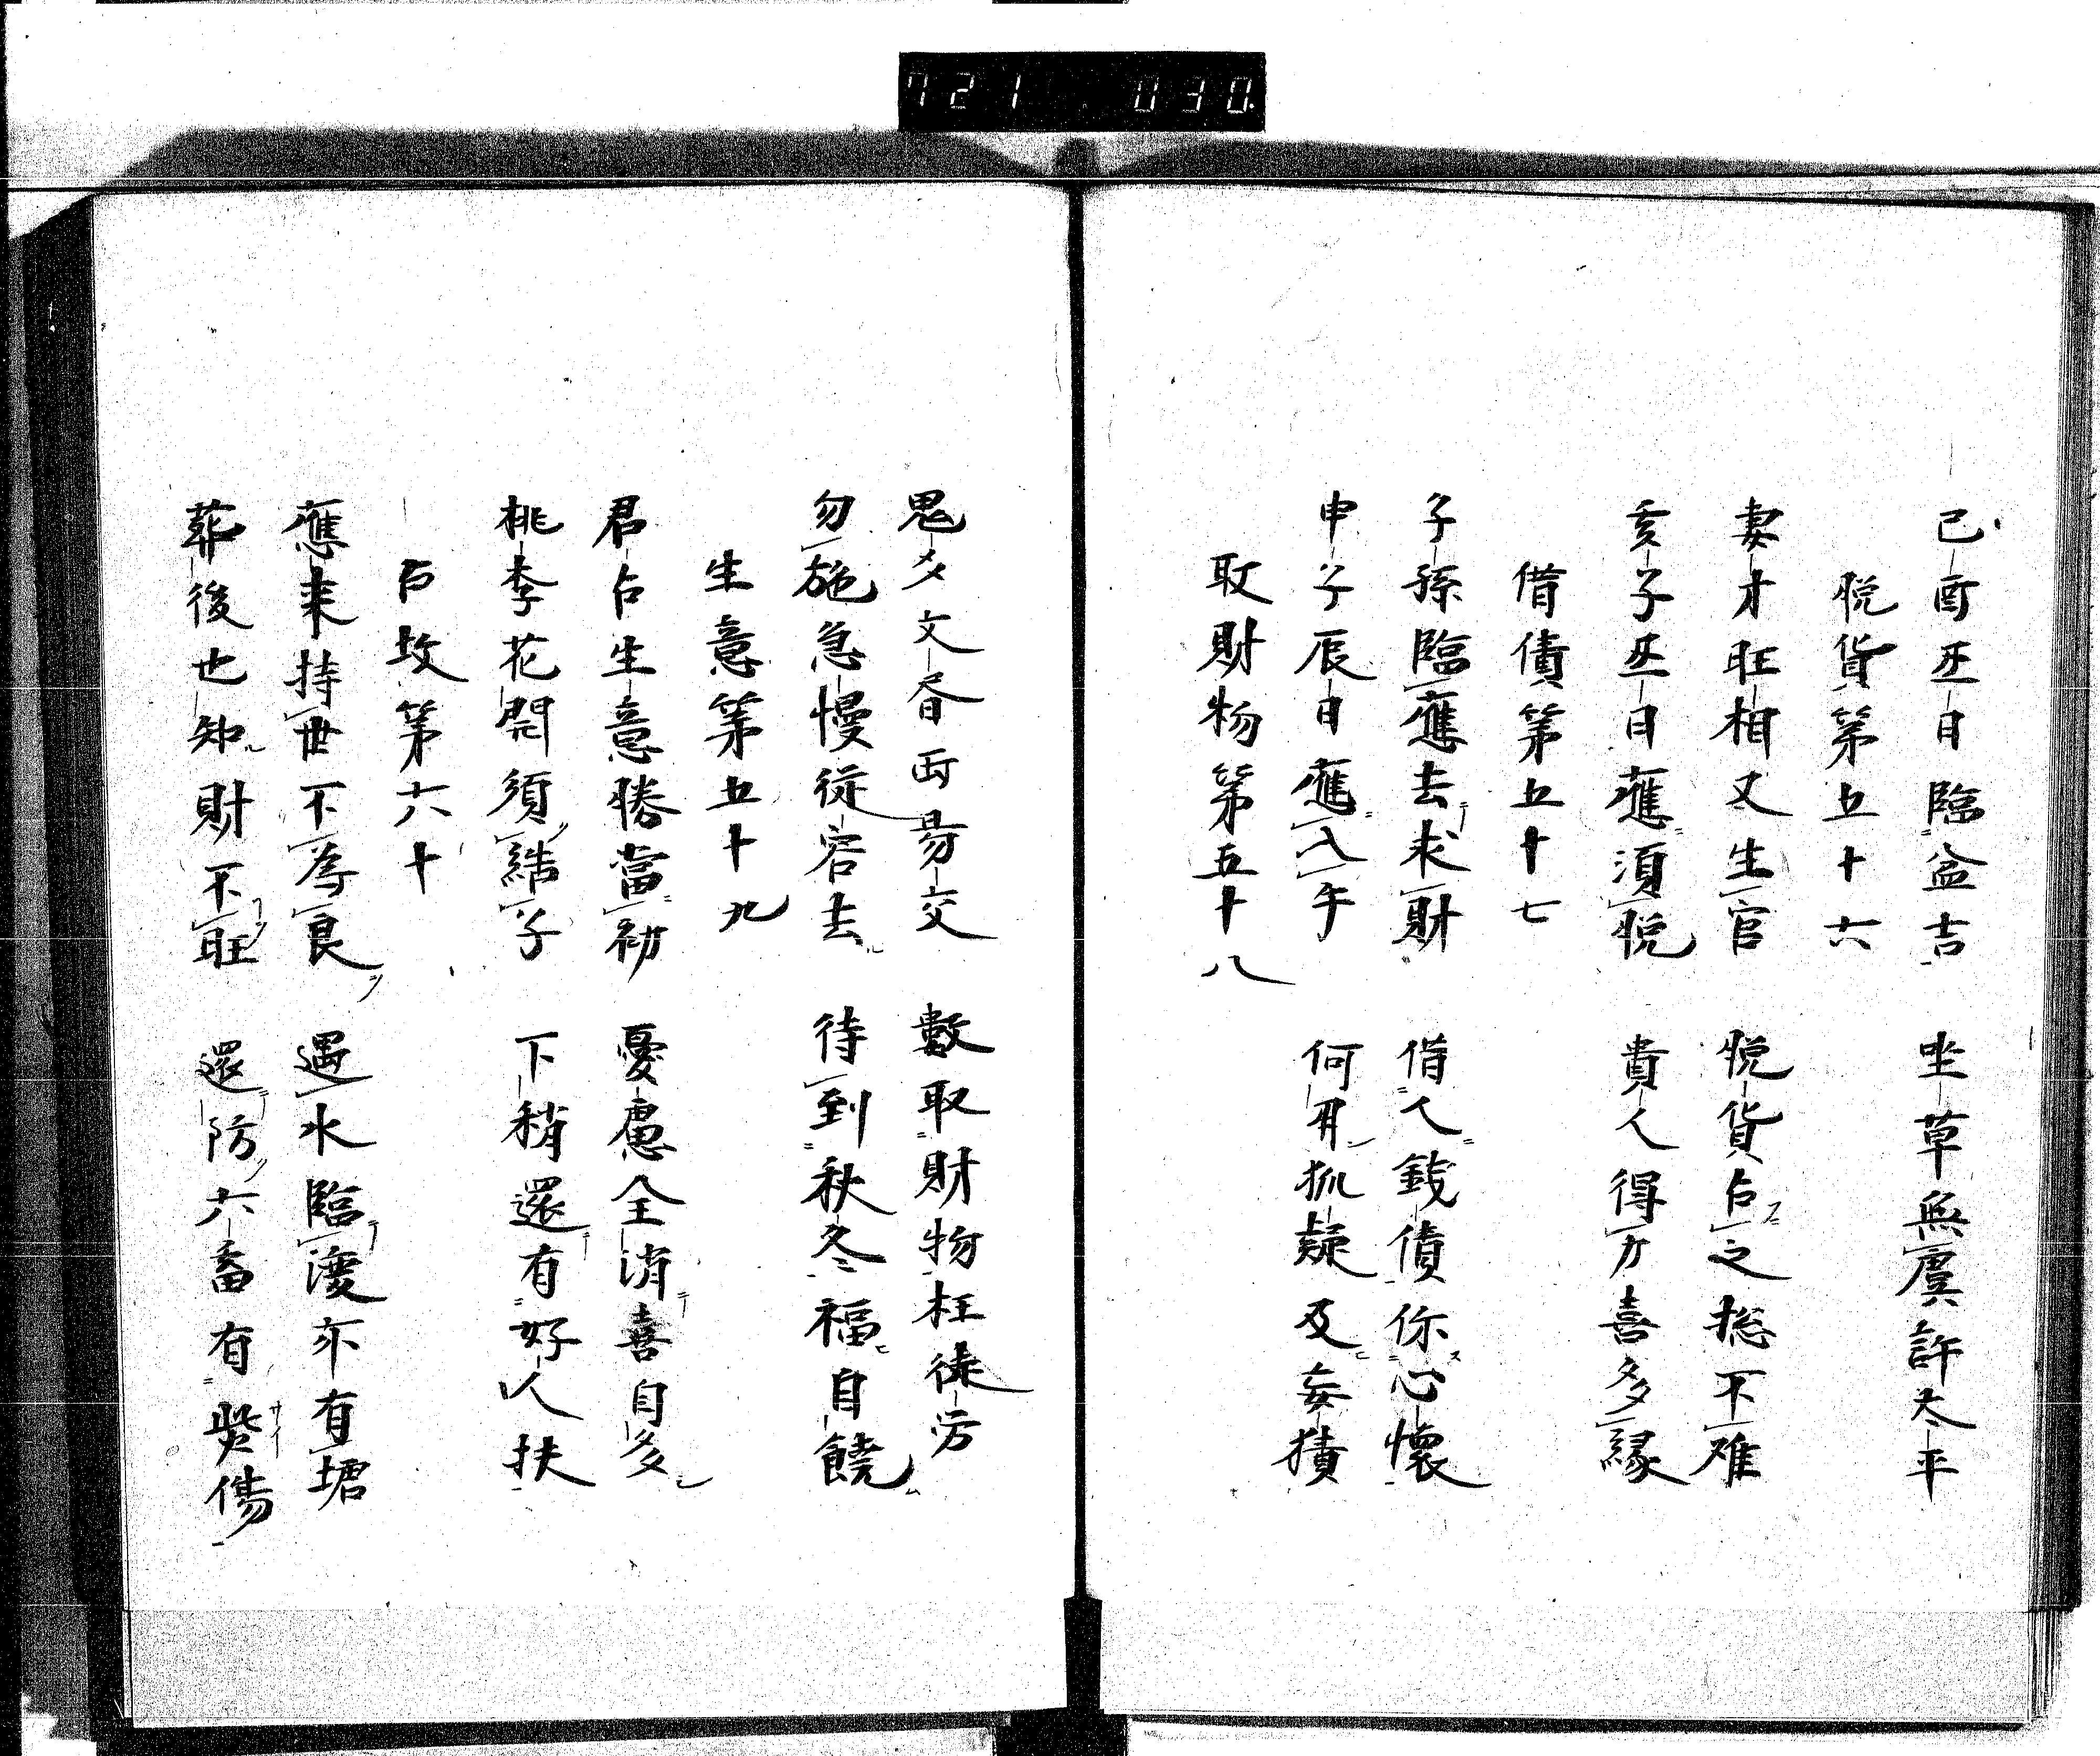 721 030
己酉丑日臨盆吉 坐草無虞許太平
脱貨第五十六
妻才旺相又生官 悦貨占之総不难
亥子丑日應須悦 貴人得力喜多縁
借債第五十七
子孫臨應去求財 借人錢債你心懷
申子辰日應入手 何用狐疑及妄猜
取財物第五十八
鬼爻文昏两易交 數取財物枉徒労
勿施急慢従容去 待到秋冬福自饒
生意第五十九
君占生意勝當初 憂慮全消喜自多
桃李花開須結子 下稍還有好人扶
占坟第六十
應来持世不為良 遇水臨渡亦有
葬後也知財不旺 還防六畜有些傷